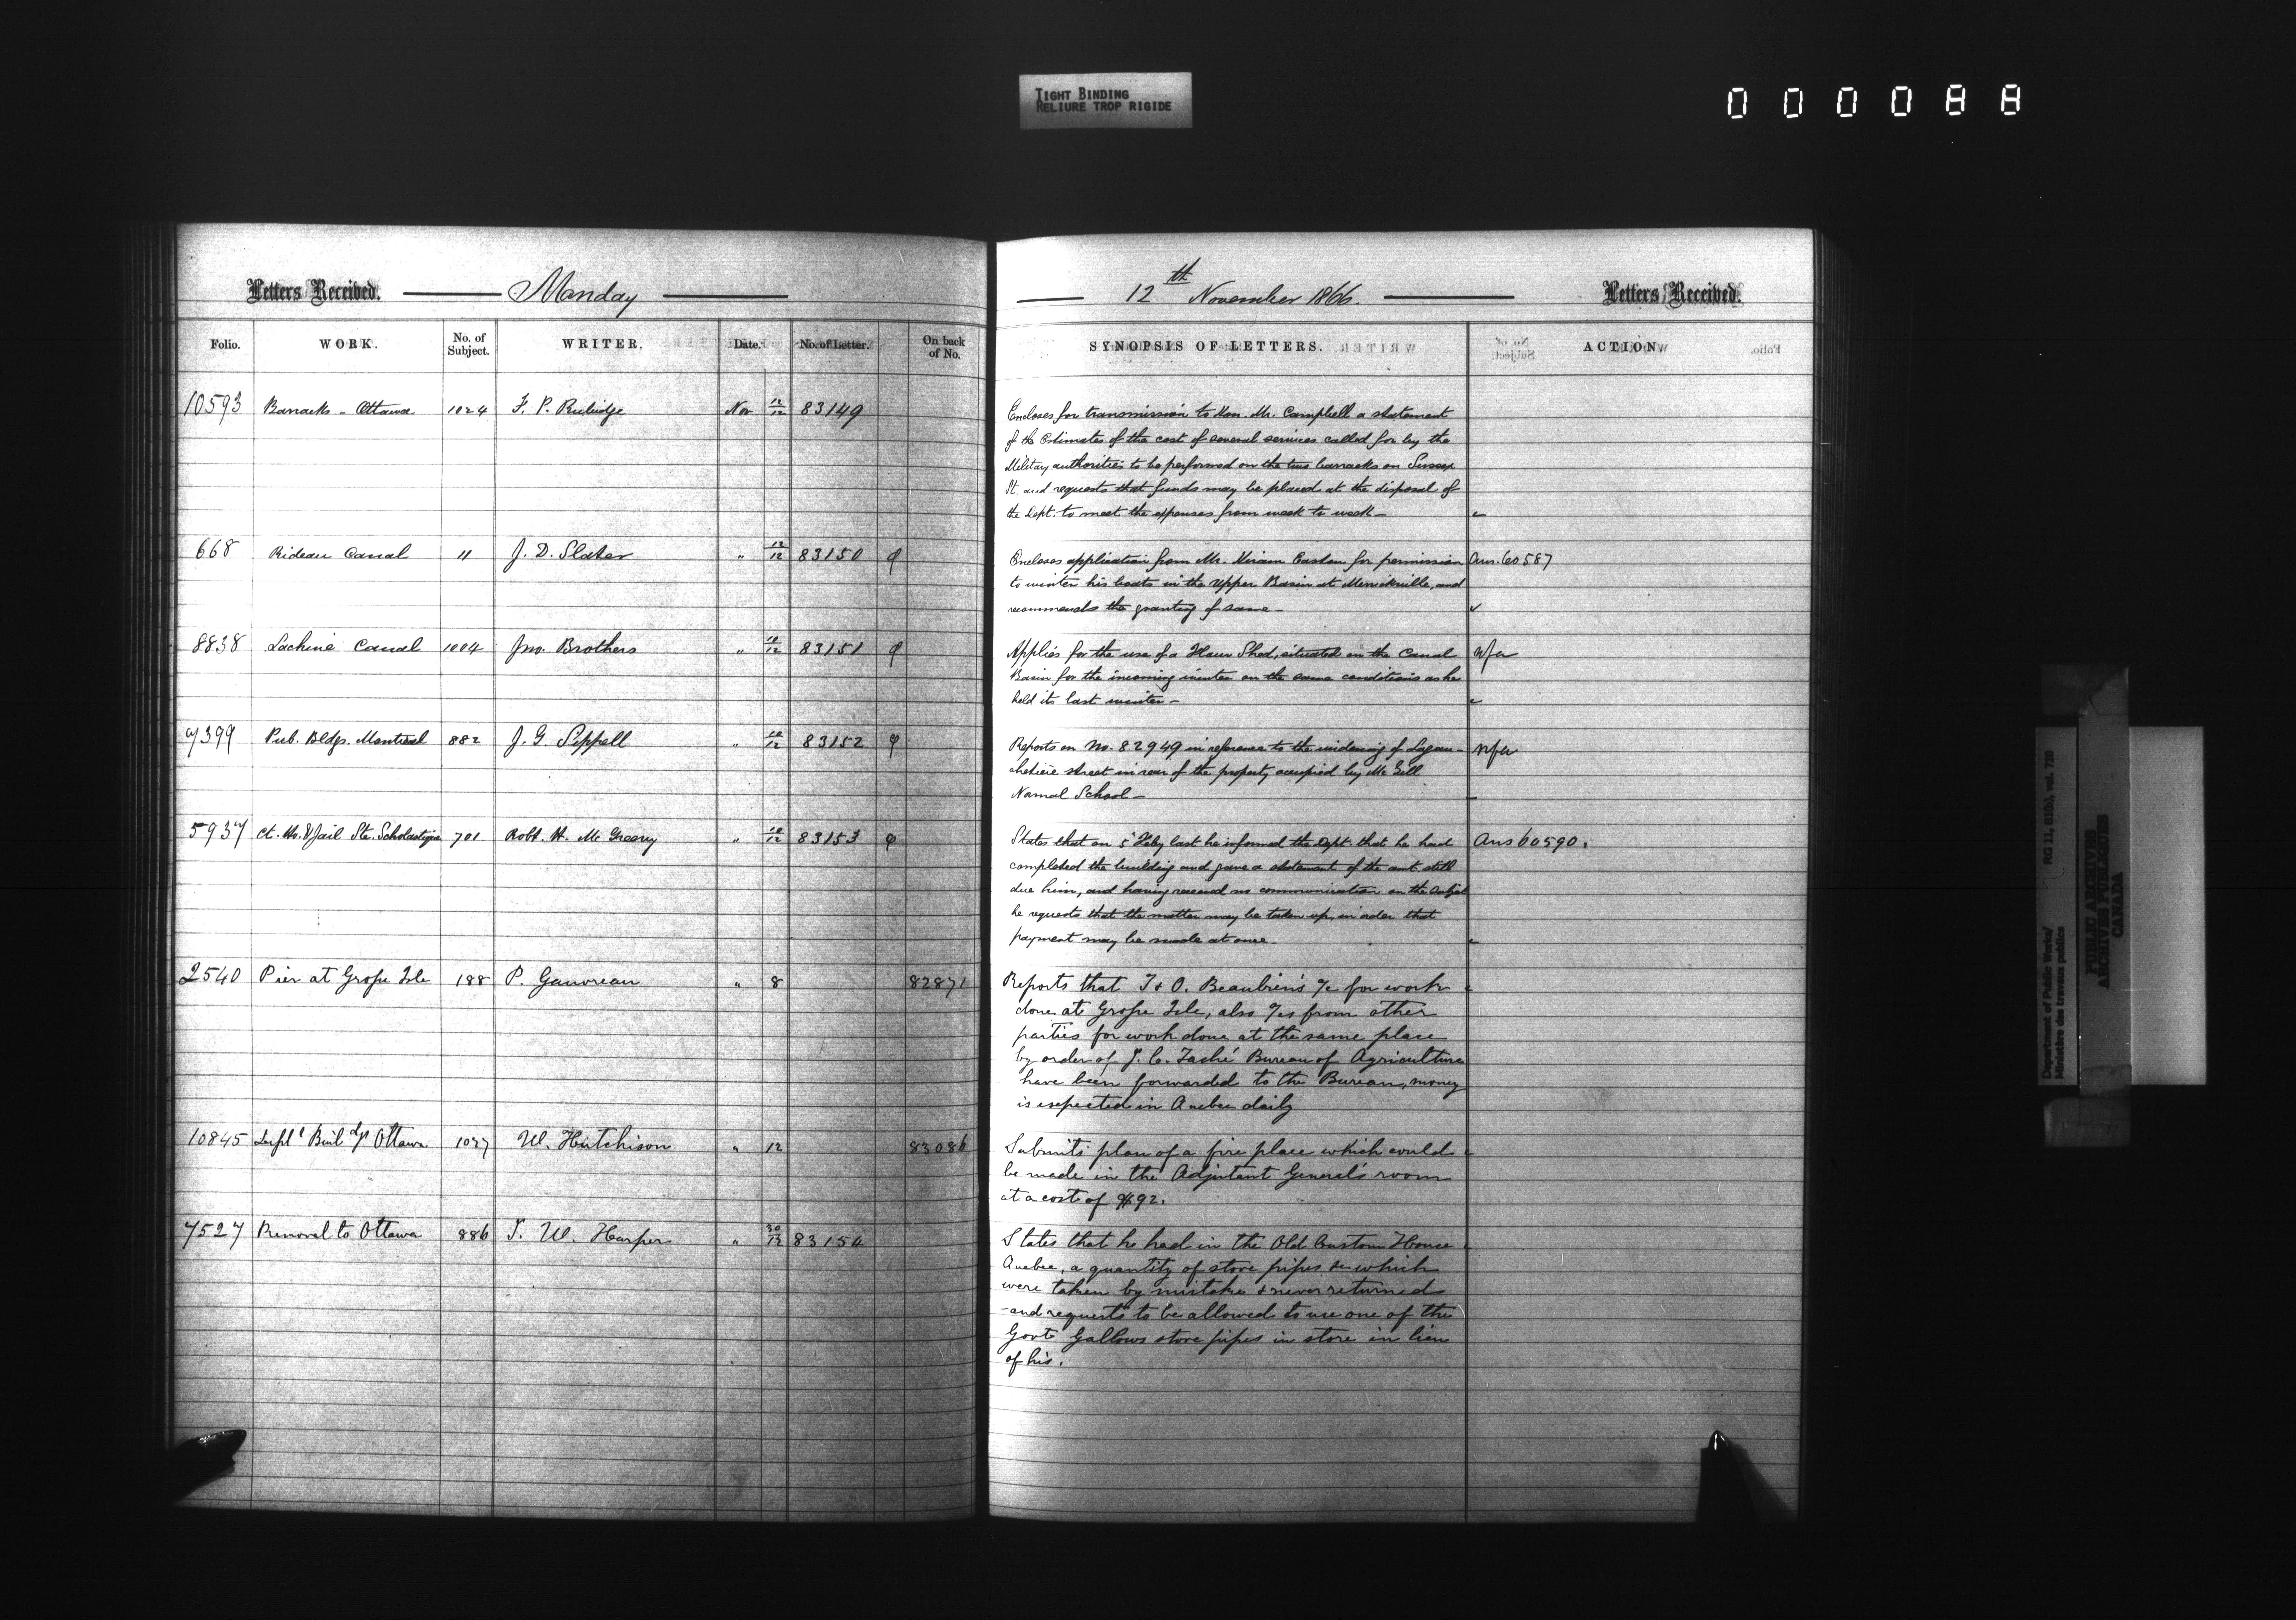 TIGHT BINDING
RELIURE TROP RIGIDE
000088
Letters Received. Monday
12th November 1866. Letters Received.
Folio. WORK. No. of Subject. WRITER. Date. No. of Letter. On back of No.
SYNOPSIS OF LETTERS. ACTION.
10593 Barracks - Ottawa 1024 F. P. Rubidge Nov 12/12 83149
Encloses for transmission to Hon. Mr. Campbell a statement
of the Estimates of the cost of several services called for by the
Military authorities to be performed on the two barracks on Sussex
St. and requests that funds may be placed at the disposal of
the Dept. to meet the expenses from week to week -
668 Rideau Canal 11 J. D. Slater " 12/12 83150
Encloses application from Mr. Hiram Easton for permission Ans. 60587
to winter his boats in the Upper Basin at Merrickville, and
recommends the granting of same -
8838 Lachine Canal 1004 Jno. Brothers " 10/12 83151
Applies for the use of a Flour Shed, situated on the Canal nfa
Basin for the incoming winter on the same conditions as he
held its last winter -
7399 Pub. Bldgs. Montreal 882 J. G. Sippell " 10/12 83152
Reports on No. 82949 in reference to the widening of Lagau- nfa
chetière street in rear of the property occupied by McGill
Normal School -
5937 Ct. Hs. & Jail Ste. Scholastique 701 Robt. H. McGreevy " 10/12 83153
States that on 5 Feby last he informed the Dept. that he had Ans 60590.
completed the building and gave a statement of the amt. still
due him, and having received no communication on the subject
he requests that the matter may be taken up, in order that
payment may be made at once.
2540 Pier at Grosse Isle 188 P. Gauvreau " 8 82871
Reports that T & O. Beaubien's a/c for work
done at Grosse Isle, also a/cs from other
parties for work done at the same place
by order of J. C. Taché Bureau of Agriculture
have been forwarded to the Bureau, money
is expected in Quebec daily
10845 Depl Buildgs Ottawa 1027 W. Hutchison " 12 83086
Submits plan of a fire place which could
be made in the Adjutant General's room
at a cost of $92.
7527 Removal to Ottawa 886 J. W. Harper " 30/12 83154
States that he had in the Old Custom House
Quebec, a quantity of stove pipes &c which
were taken by mistake & never returned
- and requests to be allowed to use one of the
Govt Gallows stove pipes in store in lieu
of his.
Department of Public Works/ RG 11, B1(b), vol. 720
Ministère des travaux publics
PUBLIC ARCHIVES
ARCHIVES PUBLIQUES
CANADA